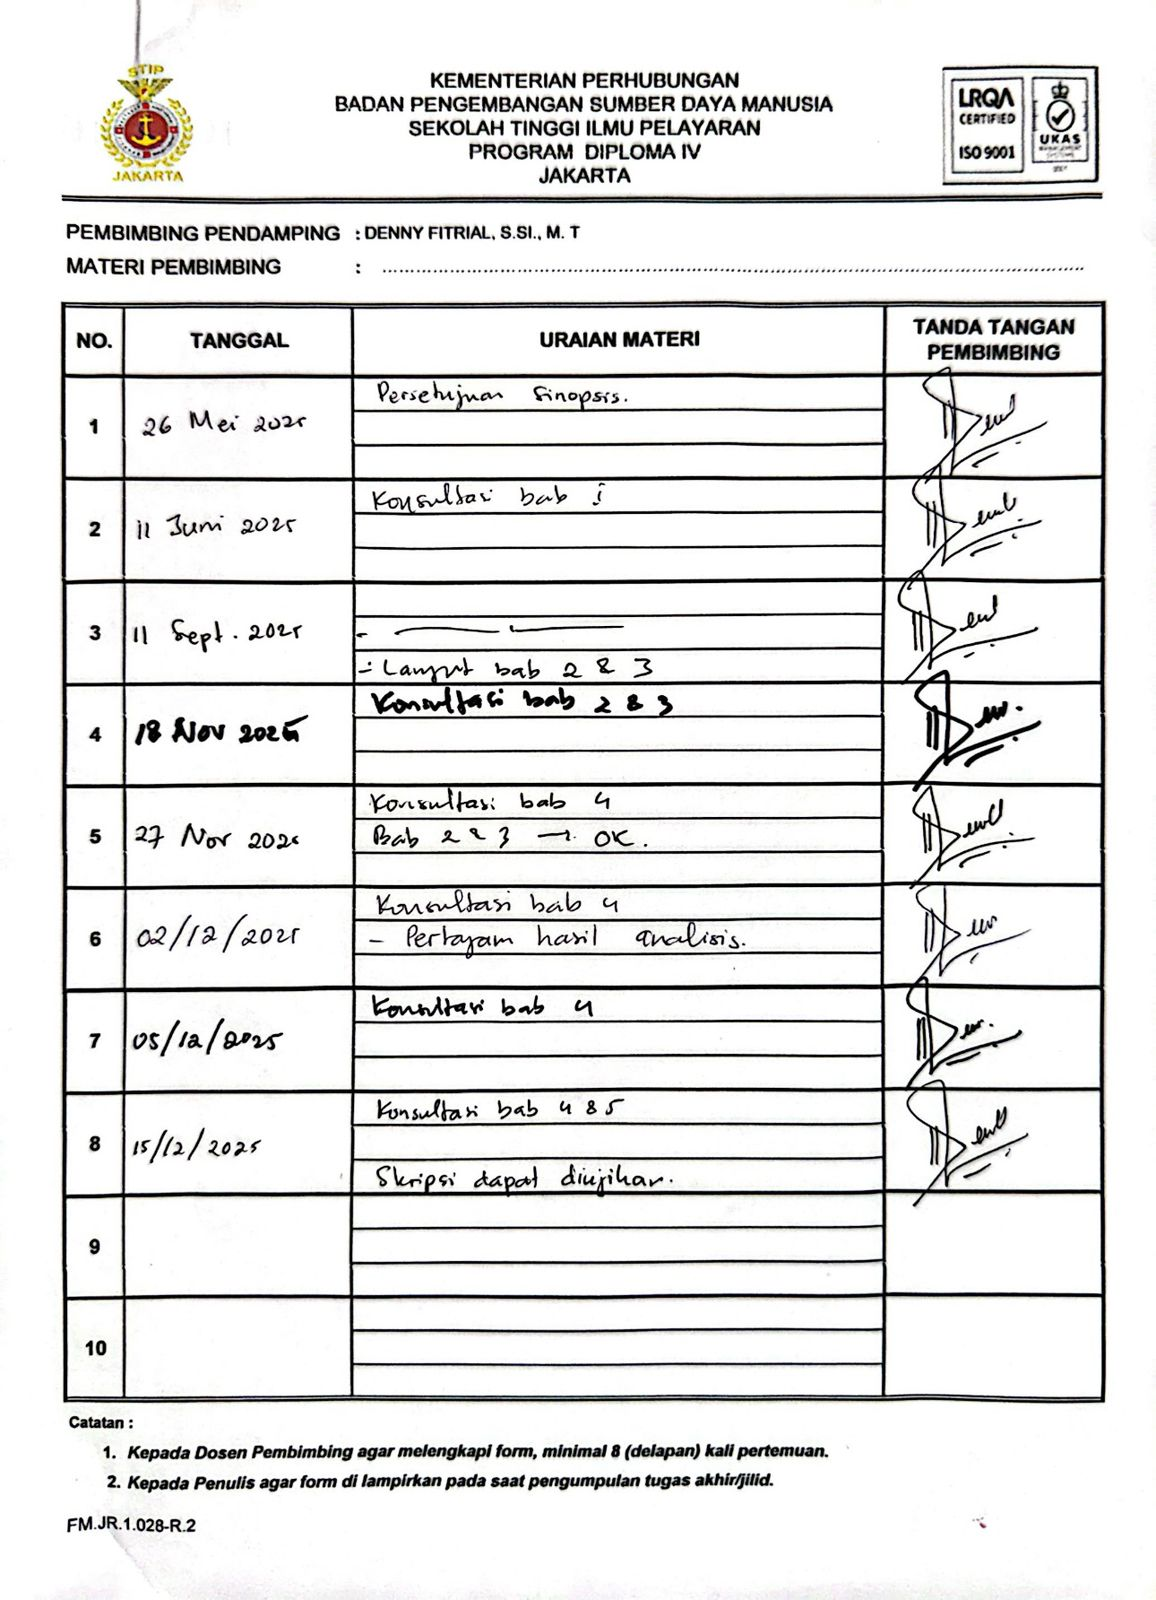 STIP
JAKARTA
KEMENTERIAN PERHUBUNGAN
BADAN PENGEMBANGAN SUMBER DAYA MANUSIA
SEKOLAH TINGGI ILMU PELAYARAN
PROGRAM DIPLOMA IV
JAKARTA
LRQA
CERTIFIED
ISO 9001
UKAS
MANAGEMENT
SYSTEMS
PEMBIMBING PENDAMPING : DENNY FITRIAL, S.SI., M. T
MATERI PEMBIMBING :
NO. TANGGAL URAIAN MATERI TANDA TANGAN PEMBIMBING
1 26 Mei 2025 Persetujuan Sinopsis.
2 11 Juni 2025 Konsultasi bab i
3 11 Sept. 2025
- Lanjut bab 2 & 3
4 18 Nov 2025 Konsultasi bab 2 & 3
5 27 Nov 2025 Konsultasi bab 4
Bab 2 & 3 → OK.
6 02/12/2025 Konsultasi bab 4
- Pertajam hasil analisis.
7 05/12/2025 Konsultasi bab 4
8 15/12/2025 Konsultasi bab 4 & 5
Skripsi dapat diujikan.
9
10
Catatan :
1. Kepada Dosen Pembimbing agar melengkapi form, minimal 8 (delapan) kali pertemuan.
2. Kepada Penulis agar form di lampirkan pada saat pengumpulan tugas akhir/jilid.
FM.JR.1.028-R.2